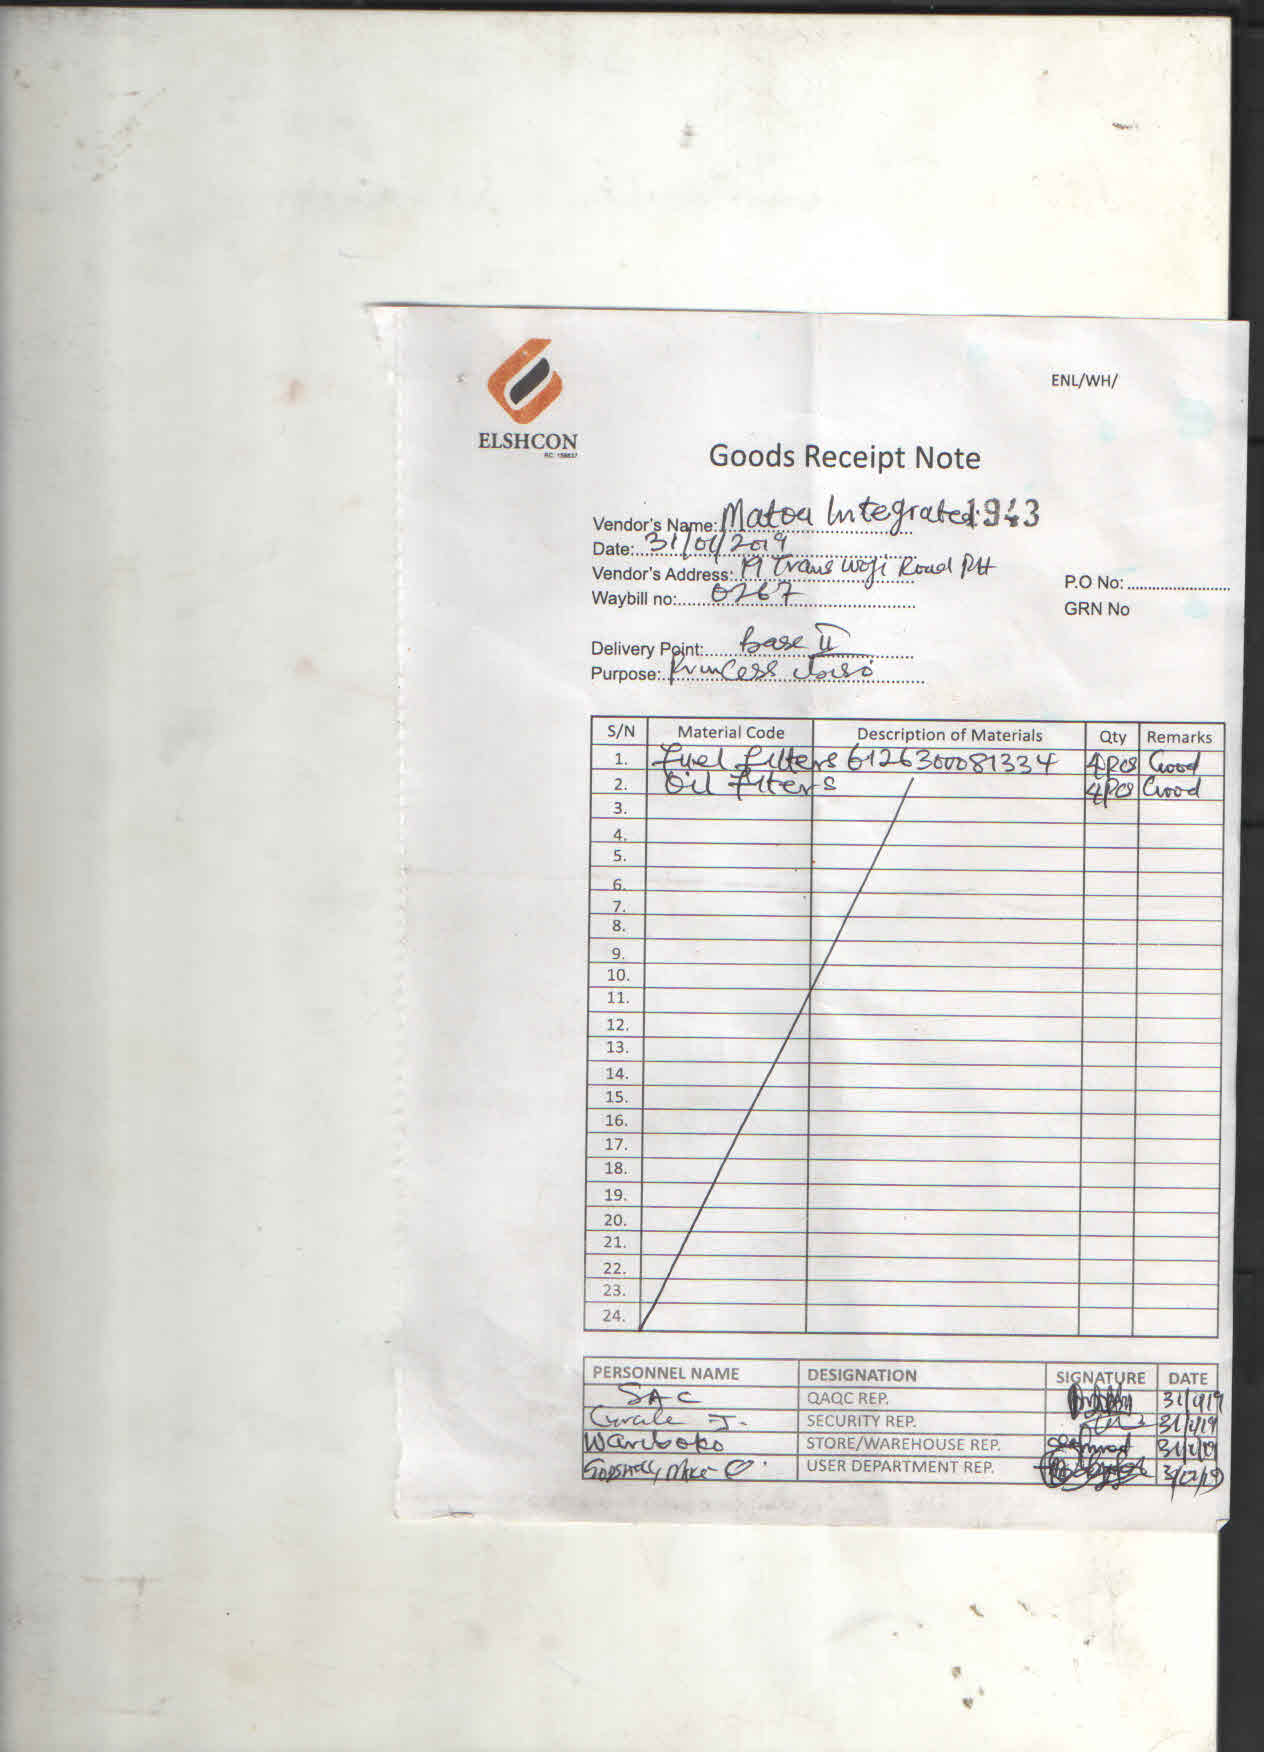 ENL/WH/
ELSHCON
RC: 156837
Goods Receipt Note
Vendor's Name: Matoa Integrated 1943
Date: 31/01/2019
Vendor's Address: 19 Trans Woji Road PH
Waybill no: 0267
P.O No:
GRN No
Delivery Point: Base II
Purpose: Princess
S/N Material Code Description of Materials Qty Remarks
1. Fuel Filters 6126300081334 4Pcs Good
2. Oil Filters 4Pcs Good
3.
4.
5.
6.
7.
8.
9.
10.
11.
12.
13.
14.
15.
16.
17.
18.
19.
20.
21.
22.
23.
24.
PERSONNEL NAME DESIGNATION SIGNATURE DATE
SAC QAQC REP. 31/1/19
J. SECURITY REP. 31/1/19
Wariboko STORE/WAREHOUSE REP. 31/1/19
Mike O. USER DEPARTMENT REP.